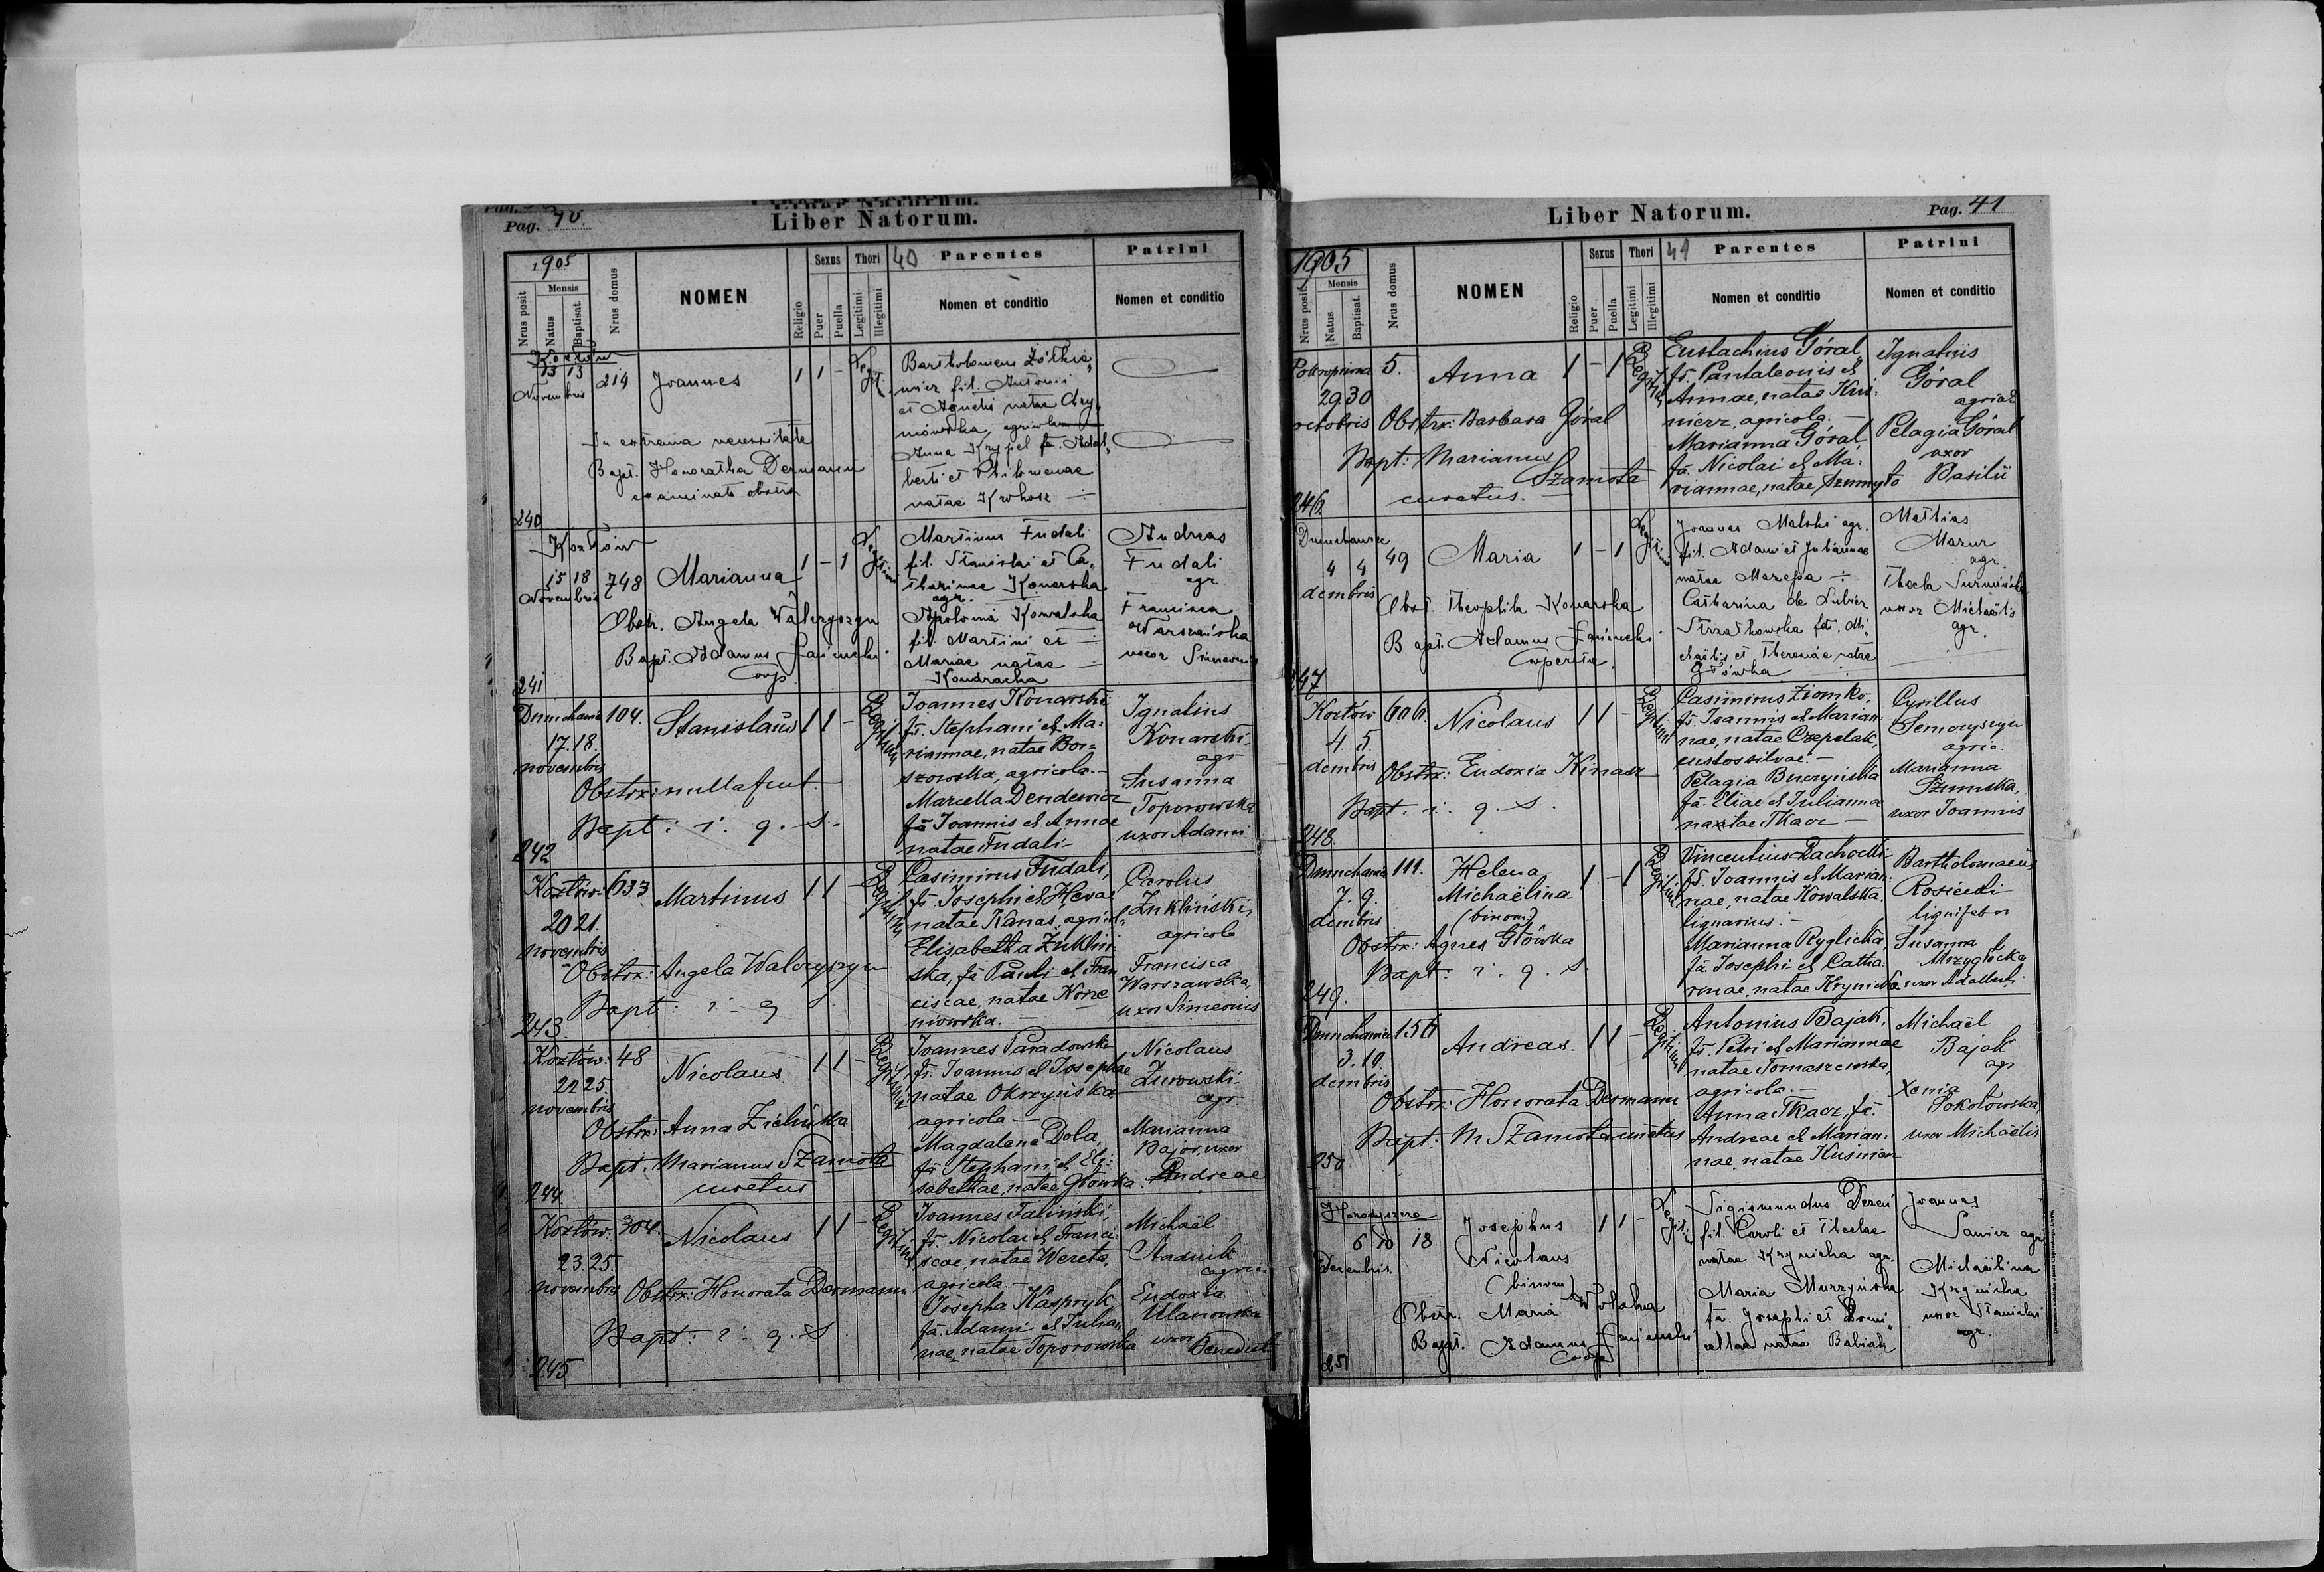 Pag. 40.
Liber Natorum.
1905
Nrus posit
Mensis
Natus
Baptisat.
Nrus domus
NOMEN
Religio
Sexus
Puer
Puella
Thori
Legitimi
Illegitimi
40
Parentes
Nomen et conditio
Patrini
Nomen et conditio
Kozłów
13 13
Novembris
214
Joannes
1 1 -
Legit.
In extrema necessitate
Bapt. Honoratha Dermann
examinata obstetr.
Bartholomeus
fil. Antonii
et Agnetis natae
agricola
Anna Krypel fa. Adal„
berti et Philomenae
natae
240
Kozłów
15 18
Novembris
748
Marianna
1 - 1
Legitimi
Obstr. Angela Walczyszyn
Bapt. Adamus Łaniucki
Coop.
Martinus Fudali
fil. Stanislai et Ca„
tharinae Konarska
agr.
Apolonia Kowalska
fil. Martini et
Mariae natae
Kondracka
Andreas
Fudali
agr.
Francisca
Warszawska
uxor Simeonis
241
104.
17. 18.
novembris
Stanislaus
1 1 -
Legitimi
Obstrx: nulla fuit.
Bapt: i. q. s.
Joannes Konarski
fs. Stephani et Ma:
riannae, natae Bor=
szowska, agricola.-
Marcella Denderwicz
fa Joannis et Annae
natae Fudali-
Ignatius
Konarski
agr
Susanna
Toporowska
uxor Adami
242
Kozłów: 633
20 21.
novembris
Martinus
1 1 -
Legitimi
Obstrx: Angela Walczyszyn
Bapt: i. q. s.
Casimirus Fudali,
fs. Josephi et Hevae
natae Kanas, agricol.
Elisabetha Żukliń-
ska, fa Pauli et Fran
ciscae, natae Korze
niowska.-
Carolus
Żukliński,
agricola
Francisca
Warszawska,
uxor Simeonis
243.
Kozłów: 48
22 25.
novembris
Nicolaus
1 1 -
Legitimi
Obstrx: Anna Zielińska
Bapt: Marianus Szamota
curatus
Joannes Paradowski
fs. Joannis et Josephae
natae Okrzyńska,
agricola -
Magdalena Dola,
fa Stephani et Eli:
sabethae, natae Główka
Nicolaus
Żurowski
agr
Marianna
Bajor, uxor
Andreae
244
Kozłów: 304.
23. 25.
novembris
Nicolaus
1 1 -
Legitimi
Obstrx: Honorata Dermann
Bapt: i. q. s.
Joannes Faliński,
fs. Nicolai et Franci:
scae, natae Wereta,
agricola.-
Josepha Kaspryk
fa. Adami et Julian
nae, natae Toporowska
Michaël
Stadnik
agric
Eudoxia
Ulanowska
uxor
Benedicti
245
Liber Natorum.
Pag. 41
1905
Nrus posit.
Mensis
Natus
Baptisat.
Nrus domus
NOMEN
Religio
Sexus
Puer
Puella
Thori
Legitimi
Illegitimi
41
Parentes
Nomen et conditio
Patrini
Nomen et conditio
5.
29. 30
octobris
Anna
1 - 1
Legitimi
Obstrx: Barbara Góral
Bapt: Marianus
Szamota
curatus.
Eustachius Góral,
fs. Pantaleonis et
Annae, natae Kuś:
nierz, agricola.-
Marianna Góral,
fa. Nicolai et Ma:
riannae, natae Szemyto
Ignatius
Góral
agricol
Pelagia Góral
uxor
Basilii
246.
4 4
dembris
49
Maria
1 - 1
Legitimi
Obst. Theophila Konarska
Bapt. Adamus Łaniucki
Cooperator.
Joannes Malski agr.
fil. Adami et Juliannae
natae Mazepa
Catharina de
Strzałkowska fa. Mi„
chaëlis et Theresiae natae
Główka
Mathias
Mazur
agr.
Thecla
uxor Michaëlis
agr.
247
Kozłów 606.
4. 5.
dembris
Nicolaus
1 1 -
Legitimi
Obstrx: Eudoxia Kinasz
Bapt: i. q. s.
Casimirus Ziomko,
fs. Joannis et Marian:
nae, natae Czepelak,
custos silvae.-
Pelagia Buczyńska
fa. Eliae et Julianna
natae Tkacz -
Cyrillus
Semczyszyn
agric.
Marianna
Szumska,
uxor Joannis
248.
111.
7. 9.
dembris
Helena
Michaëlina
(binom.)
1 - 1
Legitimi
Obstrx: Agnes Główka
Bapt: i. q. s.
Vincentius
fs. Joannis et Marian:
nae, natae Kowalska,
lignarius.-
Marianna Ryglicka,
fa Josephi et Catha:
rinae, natae Krynicka
Bartholomaeus
Rosicedi
lignifabor
Susanna
Mrzygłocka
uxor Adalberti
249.
156
3. 10.
dembris
Andreas.
1 1 -
Legitimi
Obstrx: Honorata Dermann
Bapt: M Szamota curatus
Antonius Bajak,
fs. Petri et Mariannae
natae Tomaszewska,
agricola.-
Anna Tkacz, fa.
Andreae et Marian:
nae, natae
Michaël
Bajak
agr
Xenia
Sokołowska,
uxor Michaëlis
250
Horodyszcze
6 10
Decembris.
18
Josephus
Nicolaus
(binom)
1 1 -
Legitim
Obstr. Maria
Bapt. Adamus Łaniucki
Coop
Sigismundus Dereń
fil. Caroli et Theclae
natae Krynicka agr.
Maria Murzyńska
fa. Josephi et Domi„
cellae natae Babiak
Joannes
Sanicz agr.
Michaëlina
Krynicka
uxor Stanislai
agr.
251